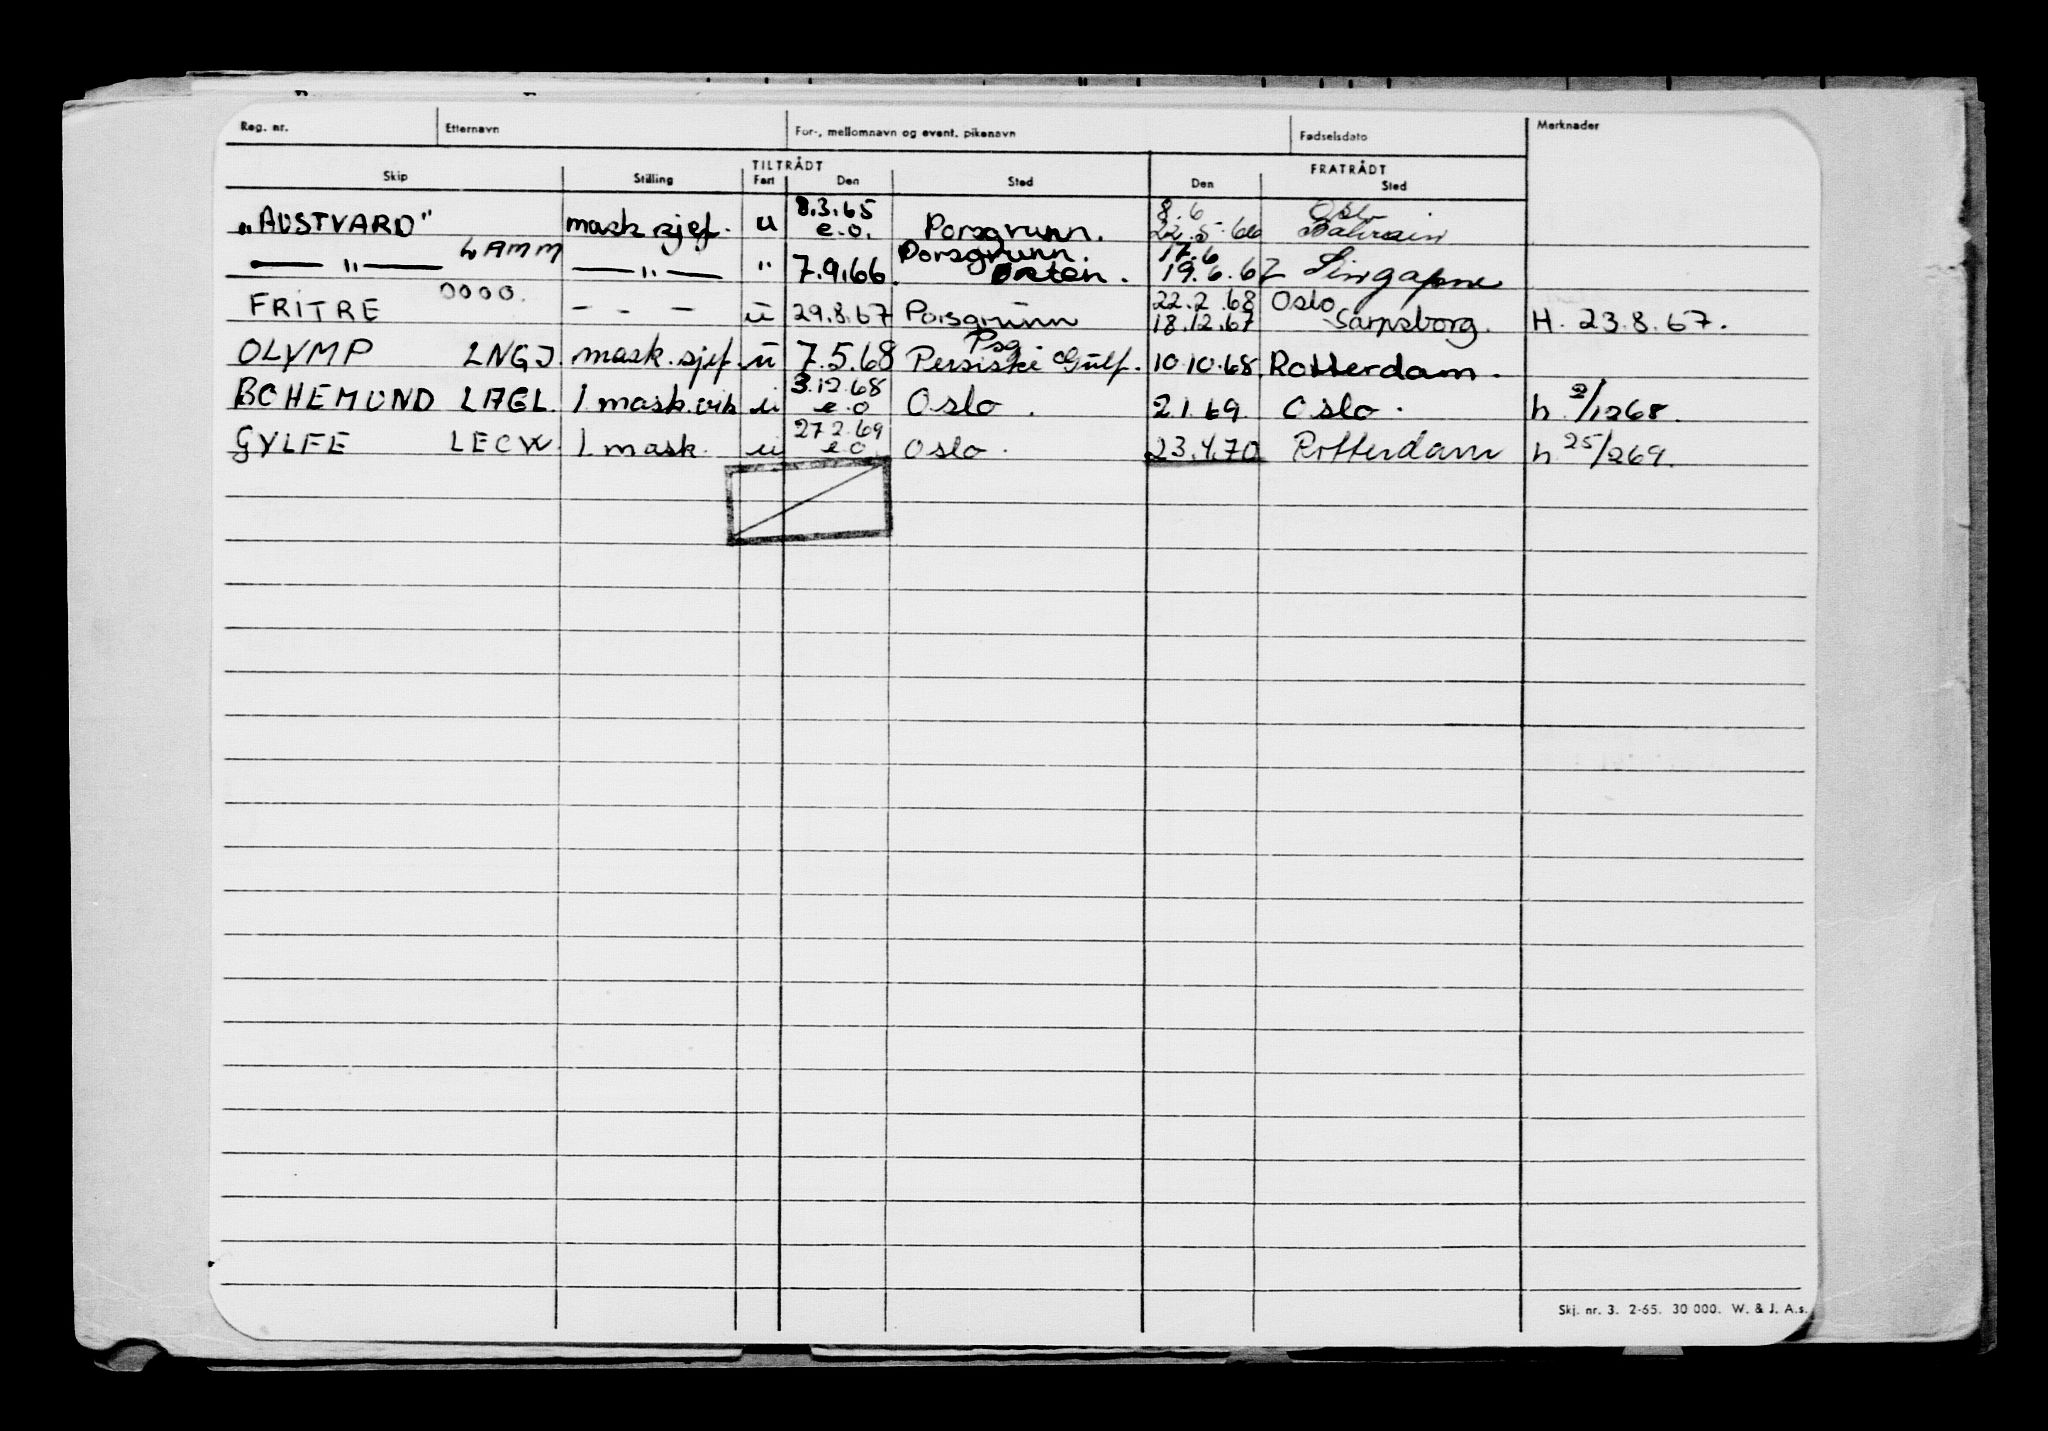 Reg. nr. Etternavn For-, mellomnavn og event. pikenavn Fødselsdato Merknader
TILTRÅDT FRATRÅDT
Skip Stilling Fart Den Sted Den Sted
8.3.65 8.6 Oslo
"AUSTVARD" mask sjef. u e.o. Porsgrunn. 22.5.66 Bahrain
LAMM Porsgrunn. 17.6
— " — — " — " 7.9.66. 19.6.67 Singapore
FRITRE OOOO. - - - u 29.8.67 Porsgrunn 22.2.68 Oslo
18.12.67 Sarpsborg. H. 23.8.67.
Psg.
OLYMP LNGJ mask.sjef. u 7.5.68 Persiske Gulf. 10.10.68. Rotterdam.
3.12.68
BOHEMUND LAGL. 1 mask. vik u e.o Oslo. 2.1.69. Oslo. h. 2/1268.
27.2.69
GYLFE LECW. 1 mask. u e.o. Oslo. 23.4.70 Rotterdam h. 25/269.
Skj. nr. 3. 2-65. 30 000. W. & J. A.s.